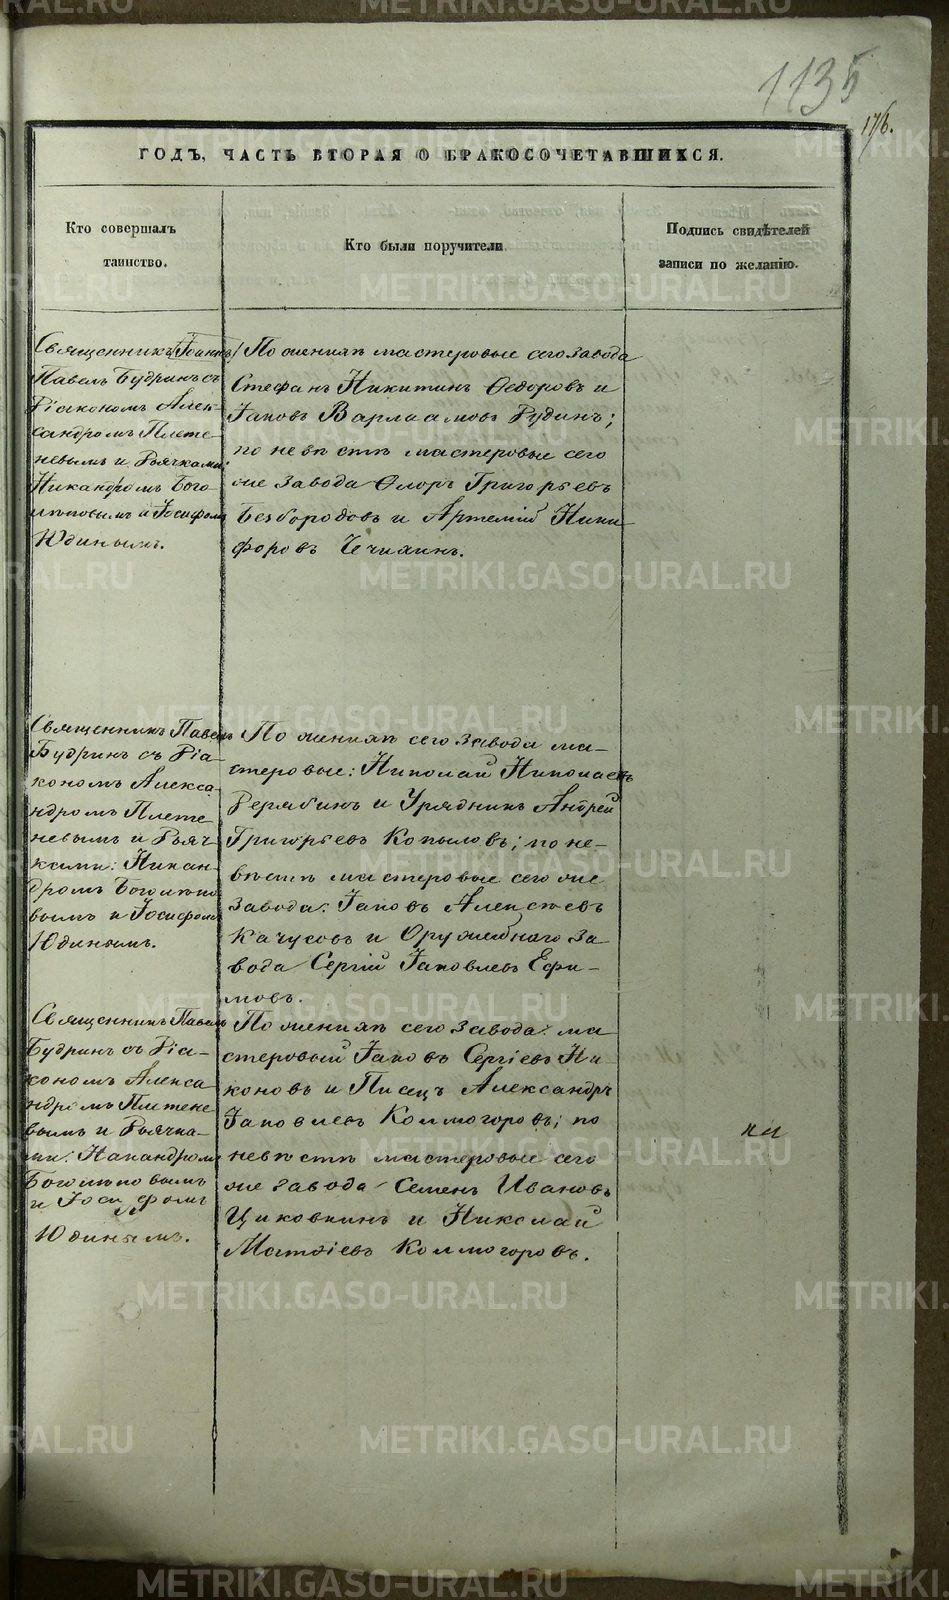 1135
176.
ГОДЪ, ЧАСТЬ ВТОРАЯ О БРАКОСОЧЕТАВШИХСЯ.
Кто совершалъ
таинство.
Кто были поручители
Подпись свидѣтелей
записи по желанію.
Священникъ
Павелъ Будринъ съ
Діакономъ Алек-
сандромъ Плете-
невымъ и Дьячками:
Никандромъ Бого-
лѣповымъ и Іосифомъ
Юдинымъ.
По женихѣ мастеровые сего завода
Стефанъ Никитинъ Ѳедоровъ и
Іаковъ Варлаамовъ Рудинъ;
по невѣстѣ мастеровые сего
же завода Флоръ Григорьевъ
Безбородовъ и Артемій Ники-
форовъ Чечихинъ.
Священникъ Павелъ
Будринъ съ Діа-
кономъ Алекса-
ндромъ Плете
невымъ и Дьяч-
ками: Никан-
дромъ Боголѣпо
вымъ и Іосифомъ
Юдинымъ.
По женихѣ сего завода ма-
стеровые: Николай Николаевъ
Дерябинъ и Урядникъ Андрей
Григорьевъ Копыловъ; по не-
вѣстѣ мастеровые сего же
завода: Іаковъ Алексѣевъ
Качусовъ и Оружейнаго за-
вода Сергій Іаковлевъ Ефи-
мовъ.
Священникъ Павелъ
Будринъ съ Діа-
кономъ Алекса-
ндромъ Плетене
вымъ и Дьячка-
ми: Никандромъ
Боголѣповымъ
и Іосифомъ
Юдинымъ.
По женихѣ сего завода: ма
стеровый Іаковъ Сергіевъ Ни-
коновъ и Писецъ Александръ
Іаковлевъ Колмогоровъ; по
невѣстѣ мастеровые сего
же завода Семенъ Ивановъ
Циковкинъ и Николай
Матѳіевъ Колмогоровъ.
METRIKI.GASO-URAL.RU